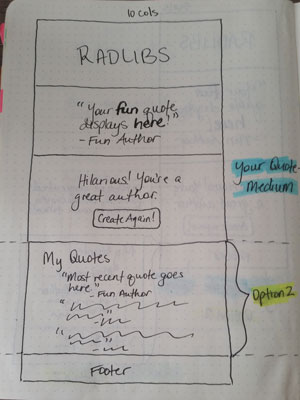 10 cols
RADLIBS
"Your fun quote
displays here!"
- Fun Author
Hilarious! You're a
great author.
Create Again!
Your Quote -
Medium
My Quotes
"Most recent quote goes
here"
- Fun Author
Option 2
Footer